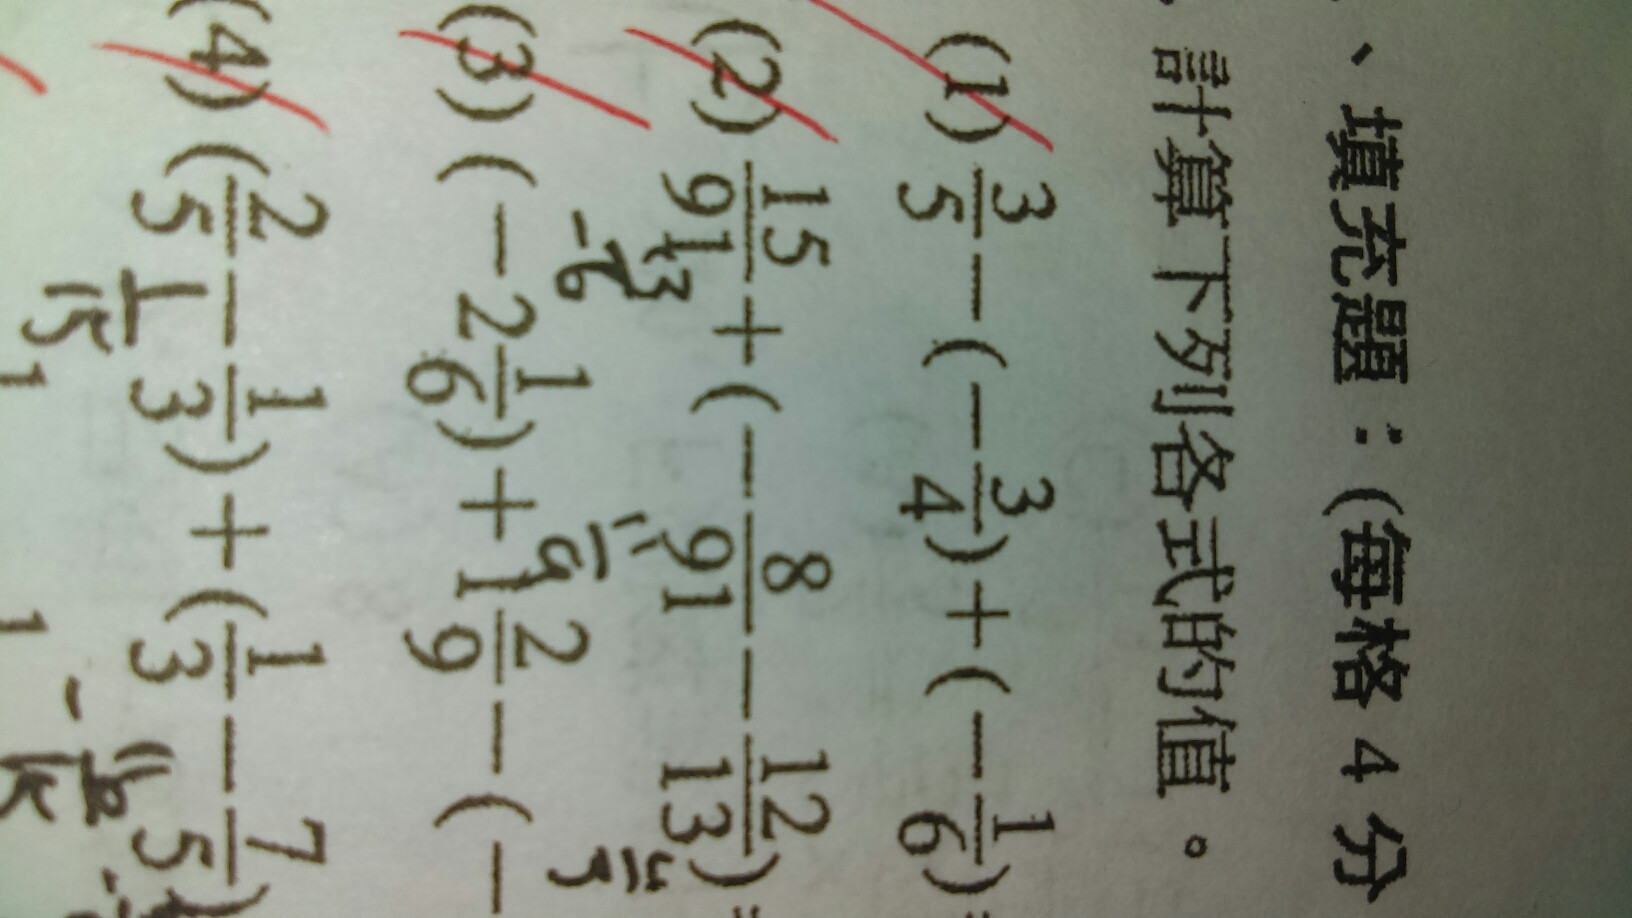 、填充題：(每格4分
計算下列各式的值。
(1) 3/5 - (-3/4) + (-1/6) =
(2) 15/91 + (-8/91 - 12/13) =
(3) (-2 1/6) + 1 2/9 - (-
(4) (2/5 - 1/3) + (1/3 - 7/5)